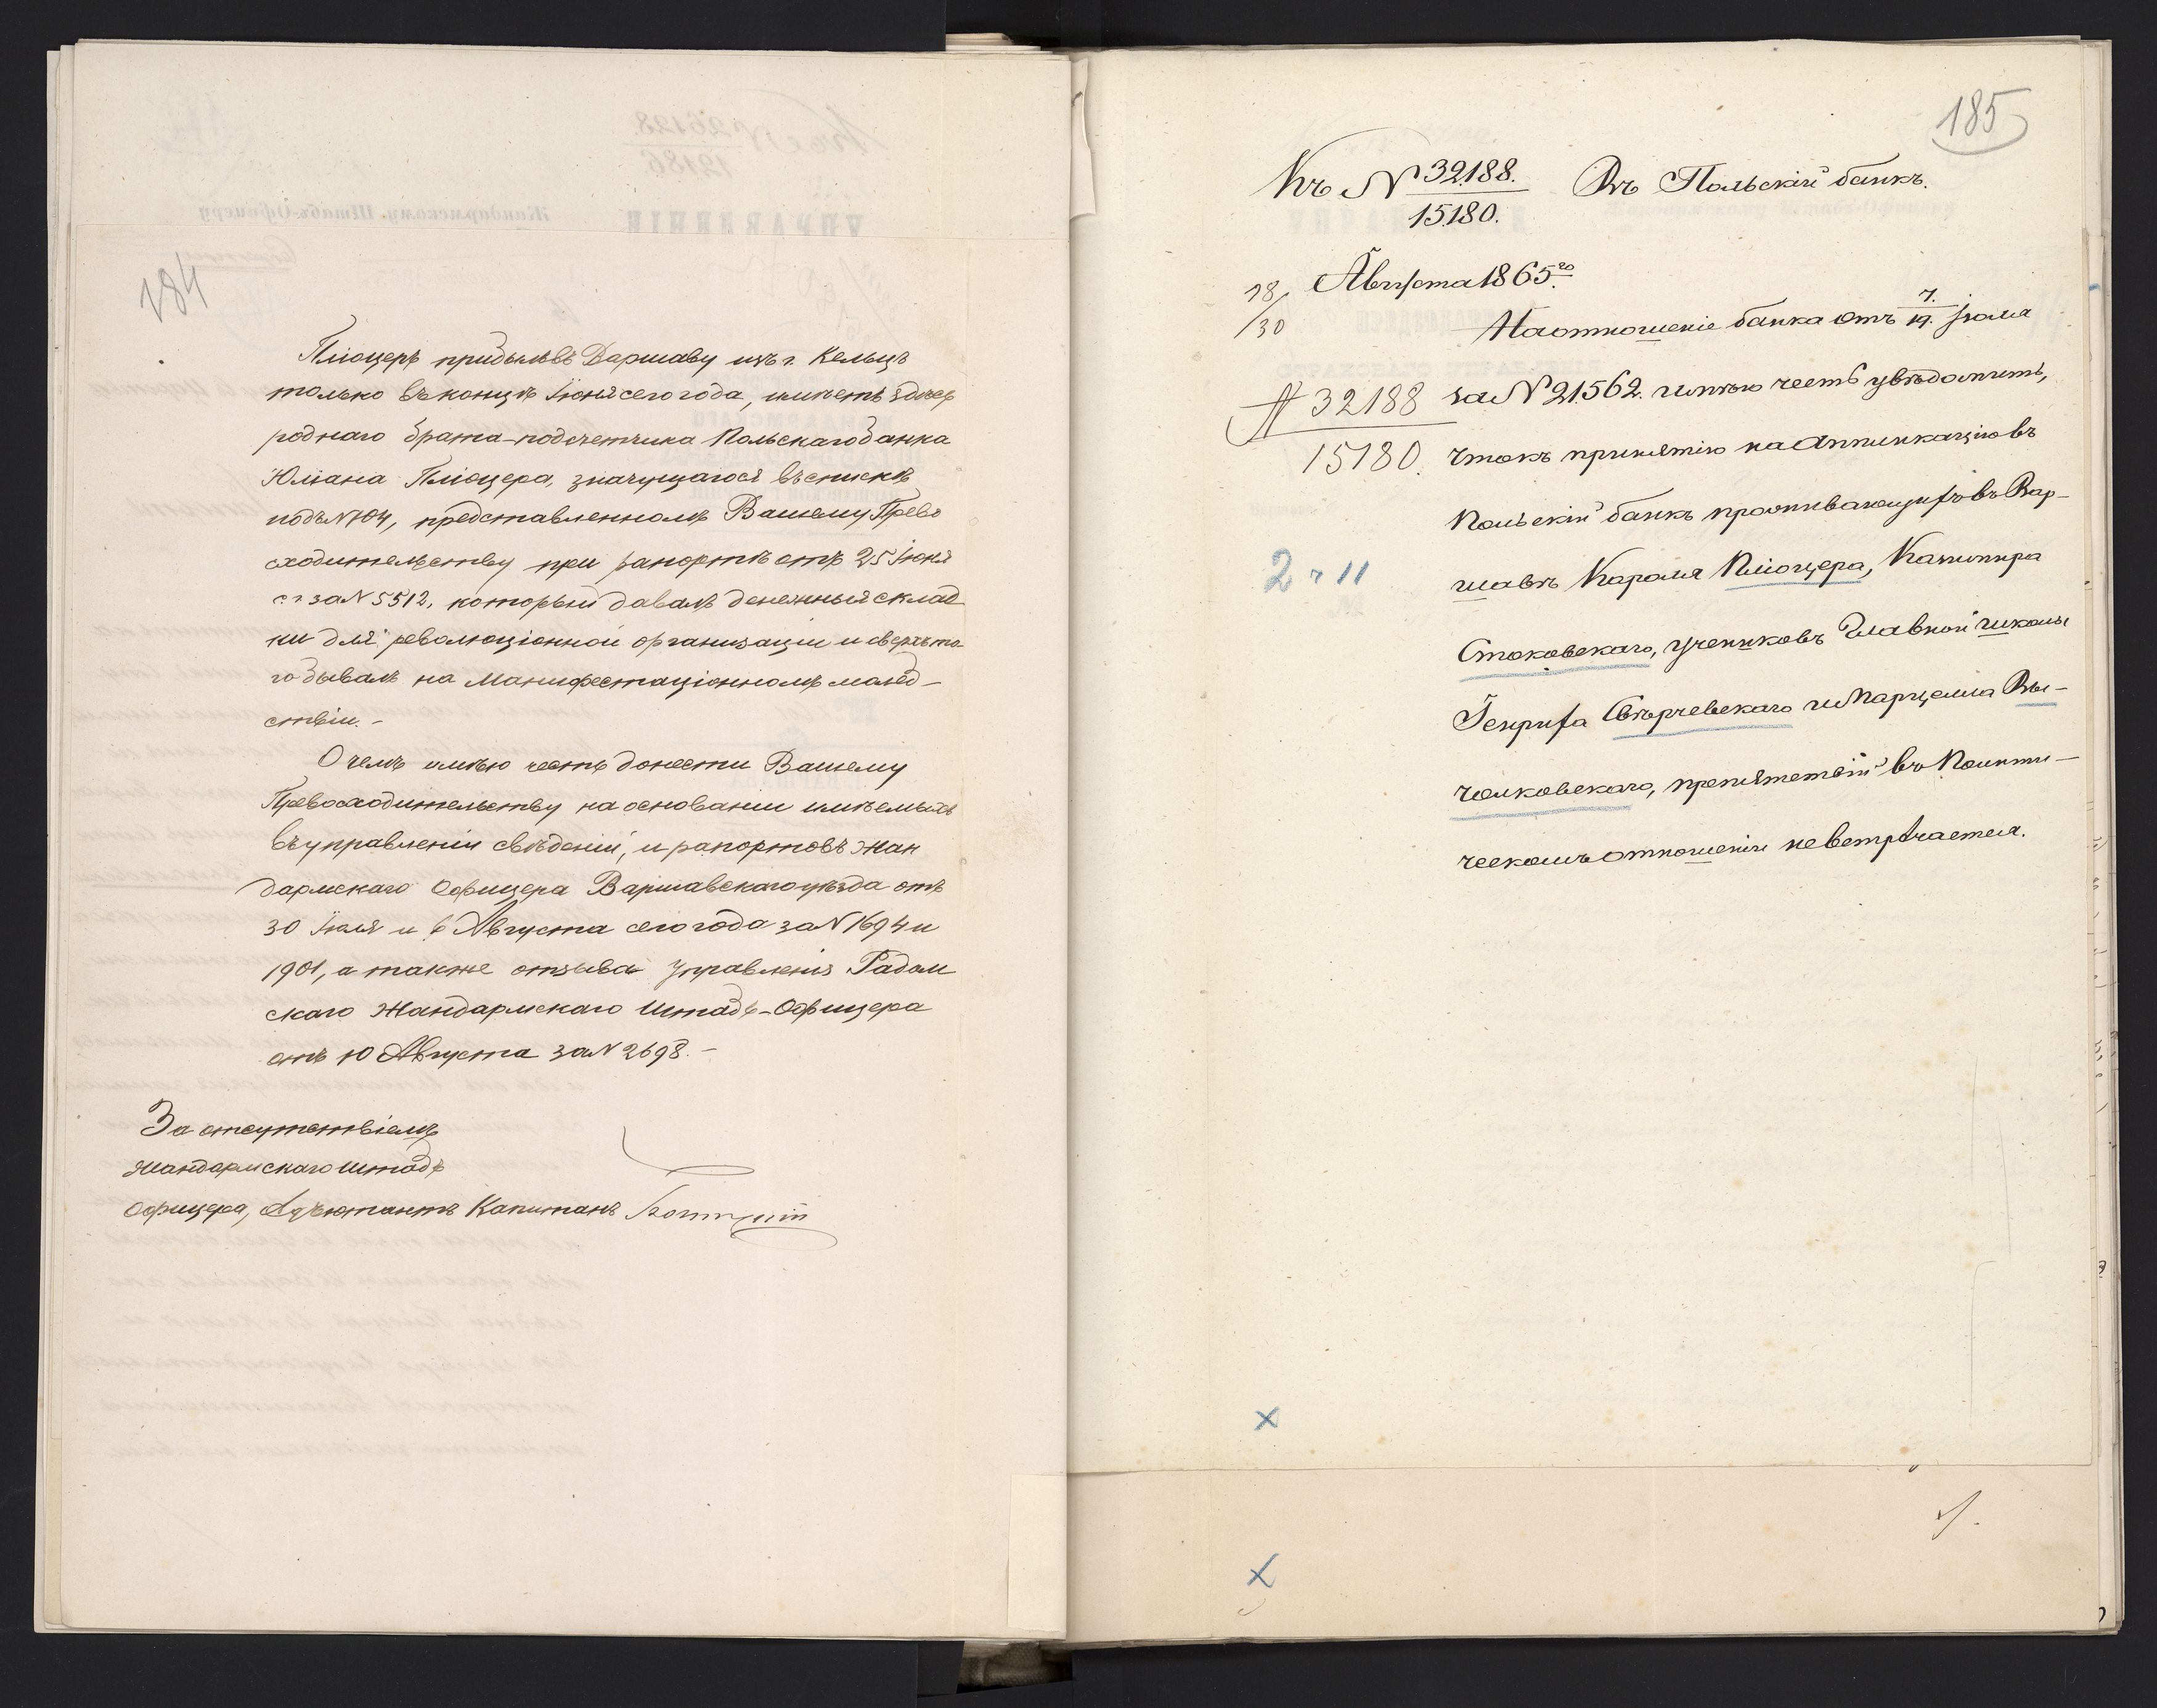 184
Пліоцеръ прибылъ въ Варшаву изъ г. Кельцъ
только въ концѣ Іюня сего года, имѣетъ двою
роднаго брата подсчетчика Польскаго банка
Юліана Пліоцера, значущагося въ спискѣ
подъ N 704, представленномъ Вашему Прево
сходительству при рапортѣ отъ 25 Іюня
с. г. за N 5512, который давалъ денежныя склад
ки для революціонной организаціи и сверхъ то
го бывалъ на манифестаціонномъ молеб-
ствіи. -
О чемъ имѣю честь донести Вашему
Превосходительству на основаніи имѣемыхъ
въ управленіи свѣденій, и рапортовъ жан
дармскаго Офицера Варшавскаго уѣзда отъ
30 Іюля и 6 Августа сего года за N 1694 и
1901, а также отзыва Управленія Радом
скаго Жандармскаго Штабъ-Офицера
отъ 10 Августа за N 2698. -
За отсутствіемъ
Жандармскаго Штабъ
Офицера, Адъютантъ Капитанъ
185
Къ N 32188. Въ Польскій банкъ.
15180.
18/30 Августа 1865 го
На отношеніе банка отъ 7./19. Іюля
N 32188 за N 21562. имѣю честь увѣдомить,
15180. что къ принятію на аппликацію въ
Польскій банкъ проживающихъ въ Вар-
2 ч 11 шавѣ Кароля Пліоцера, Казиміра
Стоковскаго, учениковъ Главной школы
Генриха Свѣрчевскаго и Марцелла Вы-
чолковскаго, препятствій въ Полити-
ческомъ отношеніи не встрѣчается.